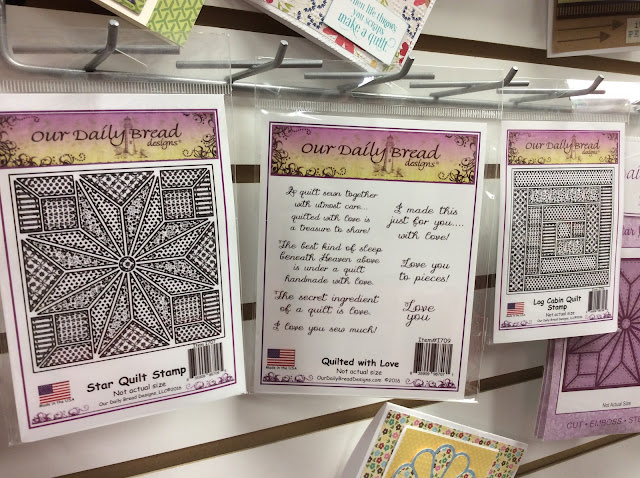 then life throws
you scraps
make a quilt
Our Daily Bread
designs
Star Quilt Stamp
Not actual size
Made in the USA
Our Daily Bread Designs, LLC©2016
Our Daily Bread
designs
A quilt sewn together
with utmost care...
quilted with love is
a treasure to share!
The best kind of sleep
beneath Heaven above
is under a quilt
handmade with love.
The secret ingredient
of a quilt is love.
I love you sew much!
I made this
just for you....
with love!
Love you
to pieces!
Love
you
Item#1709
Quilted with Love
Not actual size
Made in the USA
OurDailyBreadDesigns.com ©2016
Our Daily Bread
designs
Log Cabin Quilt
Stamp
Not actual size
Made in the USA
Our Daily Bread Designs, LLC©2016
Not Actual Size
CUT • EMBOSS •